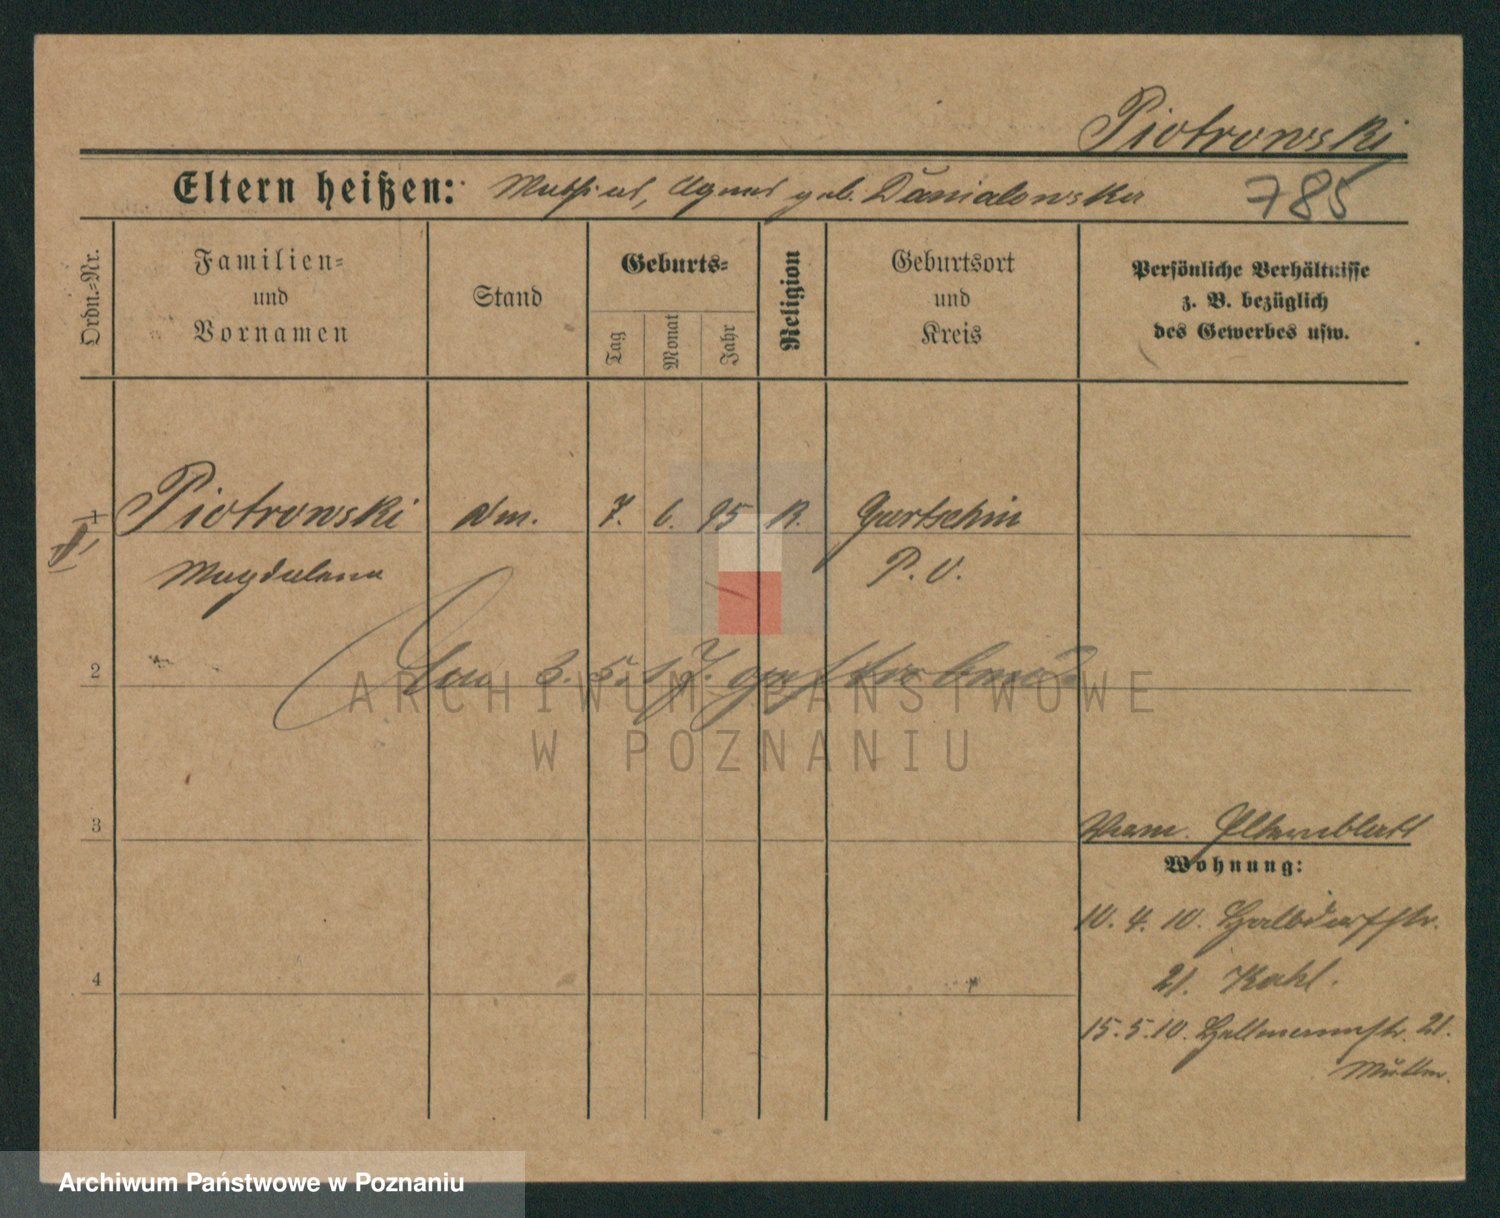 Piotrowski
Eltern heißen: Mathias, Agnes geb. Danialowska
785
Ordn.-Nr.
Familien=
und
Vornamen
Stand
Geburts=
Tag
Monat
Jahr
Religion
Geburtsort
und
Kreis
Persönliche Verhältnisse
z. B. bezüglich
des Gewerbes usw.
1 Piotrowski Dm. 7. 6. 95 K. Gurtschin
Magdalena P. O.
2 3. 5. 17.
ARCHIWUM PAŃSTWOWE
W POZNANIU
3
Elternblatt
Wohnung:
10. 4. 10. Halbdorfstr.
4
21. Kahl.
15. 5. 10. 21.
Archiwum Państwowe w Poznaniu